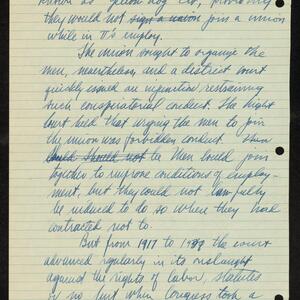 known as yellow dog
they would not sign a union join a union
while in π's employ.
The union sought to organize the
men, nevertheless and a district court
quickly issued an injunction restraining
such conspiratorial conduct. The high
court held that urging the men to join
the union was forbidden conduct.
could should not be Men could join
together to improve conditions of employ-
ment, but they could not lawfully
be induced to do so where they had
contracted not to.
But from 1917 to 1937 the court
advanced regularly in its onslaught
against the rights of labor, statutes
or no. And when Congress took a